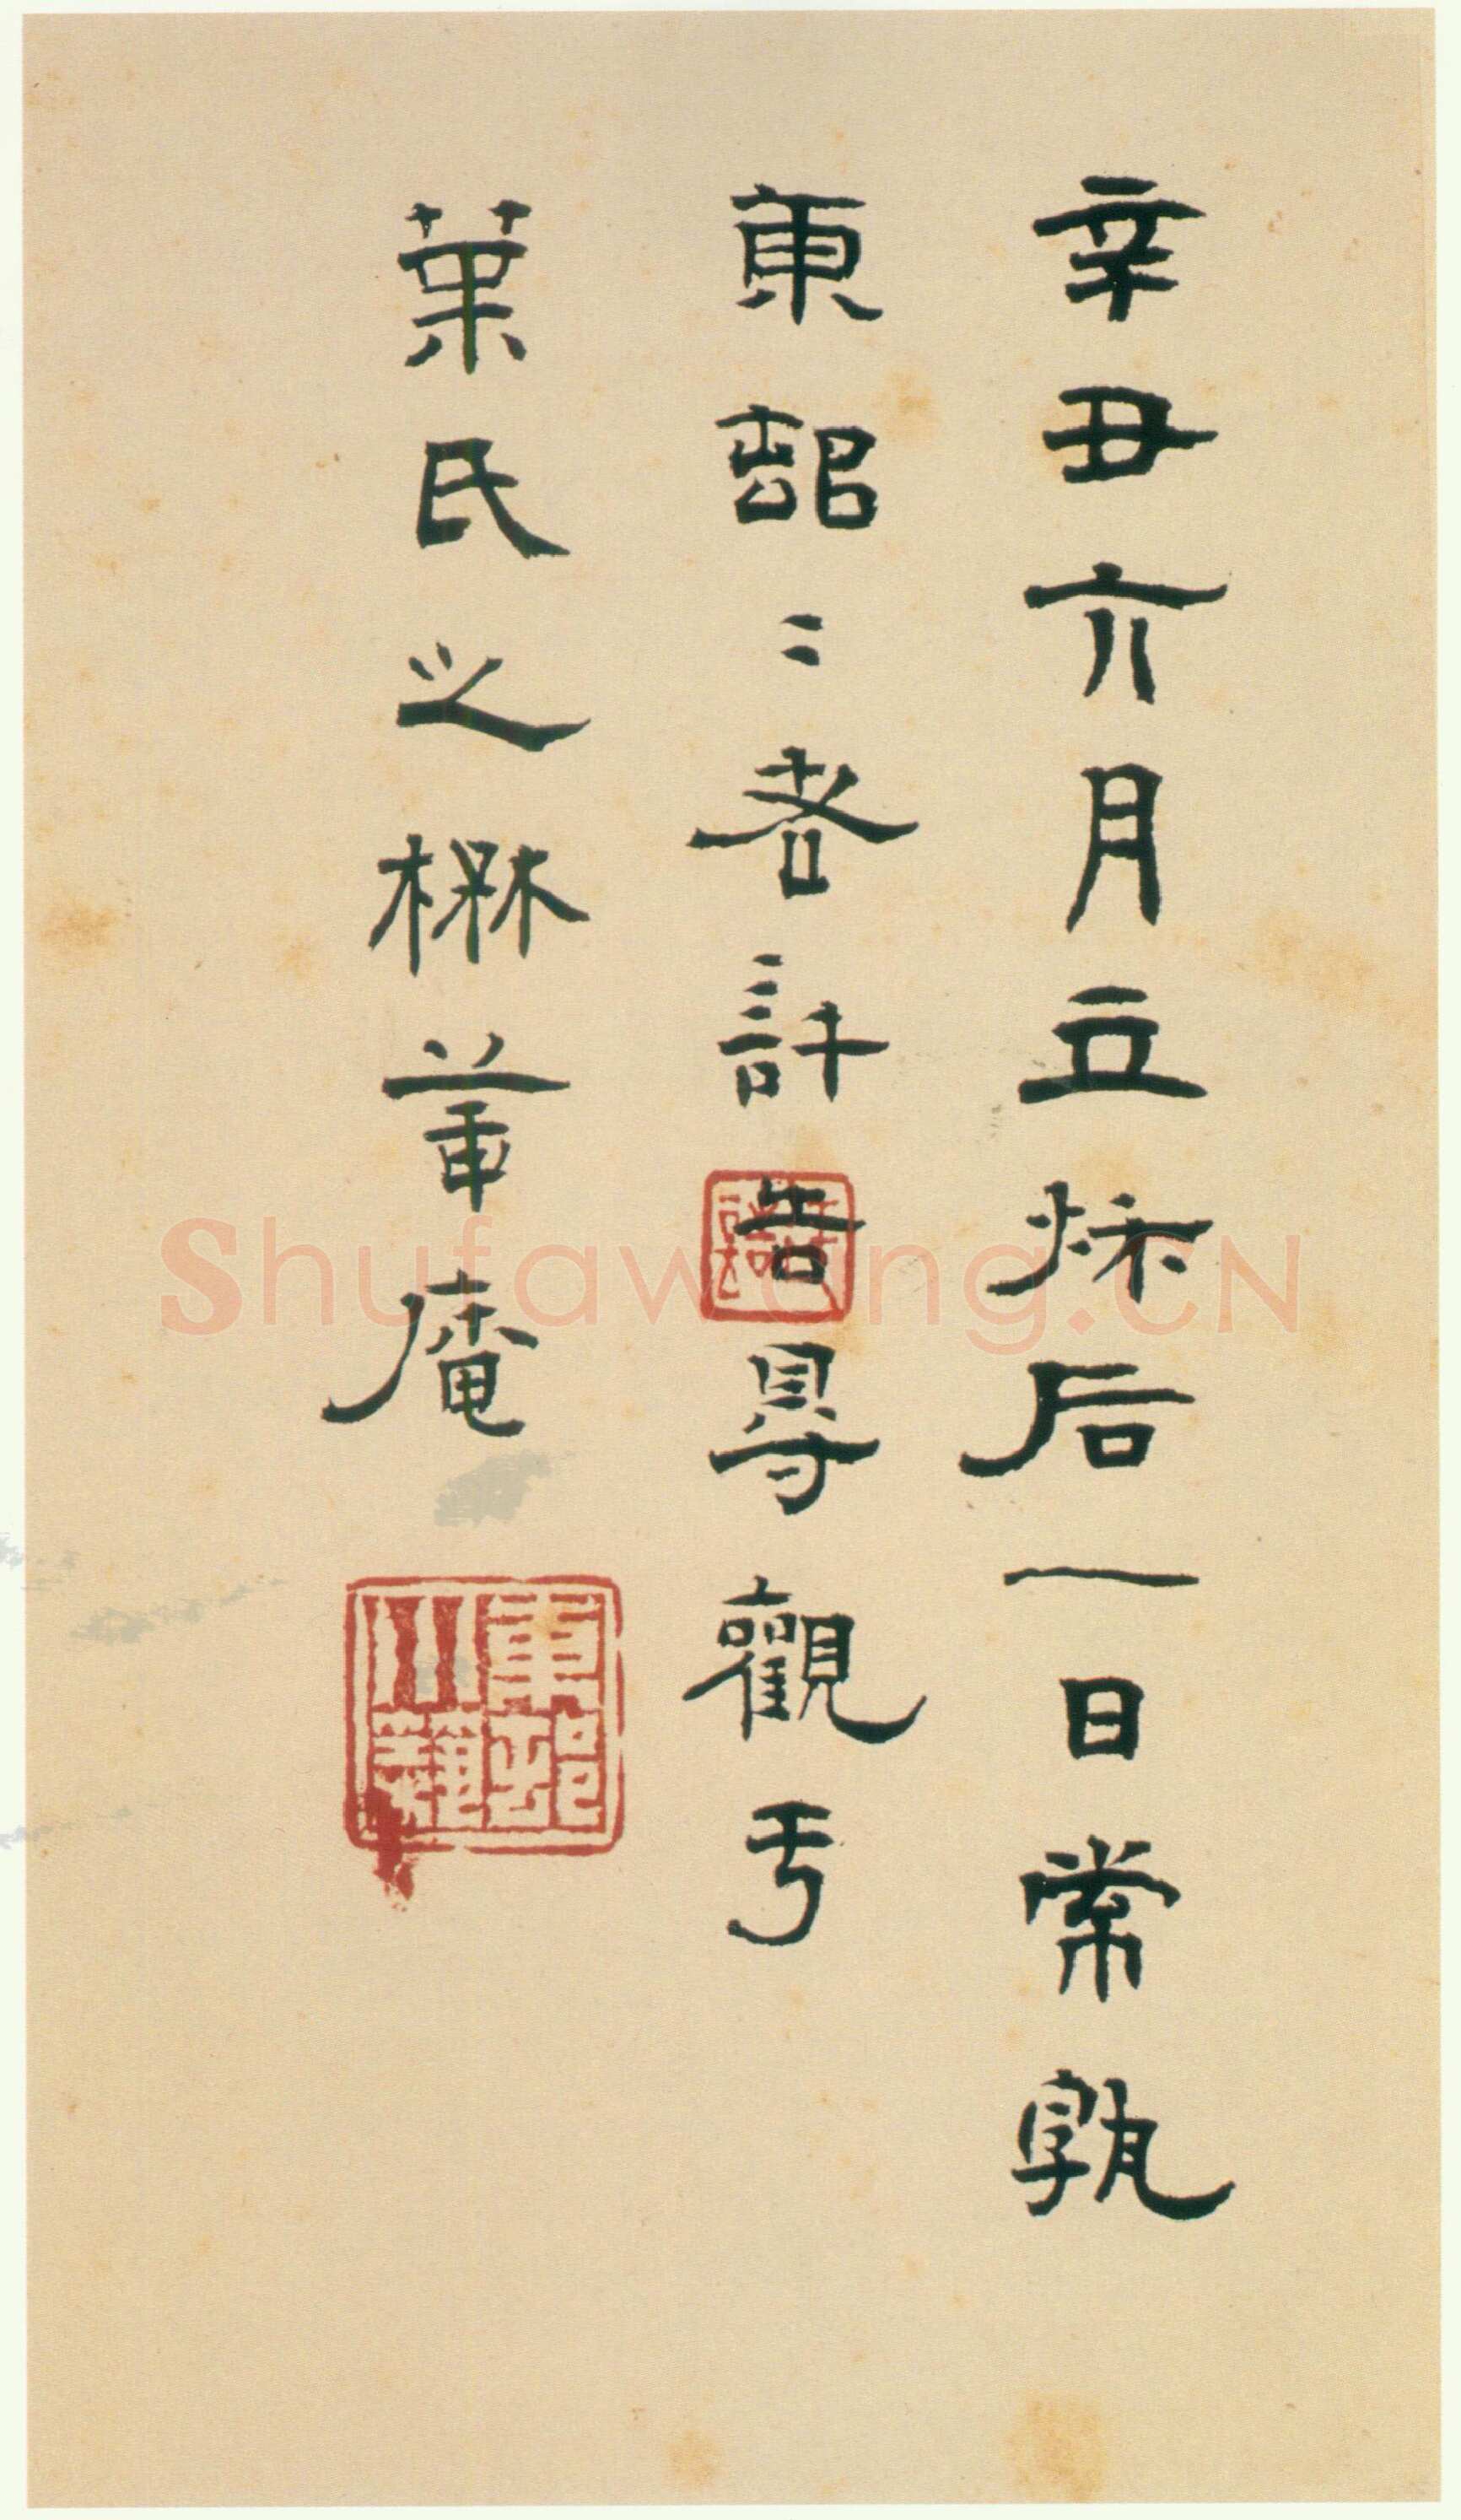 辛丑六月立秌后一日常孰
東鄙〻耇許告㝵觀于
葉氏之楙華庵
Shufawang.CN